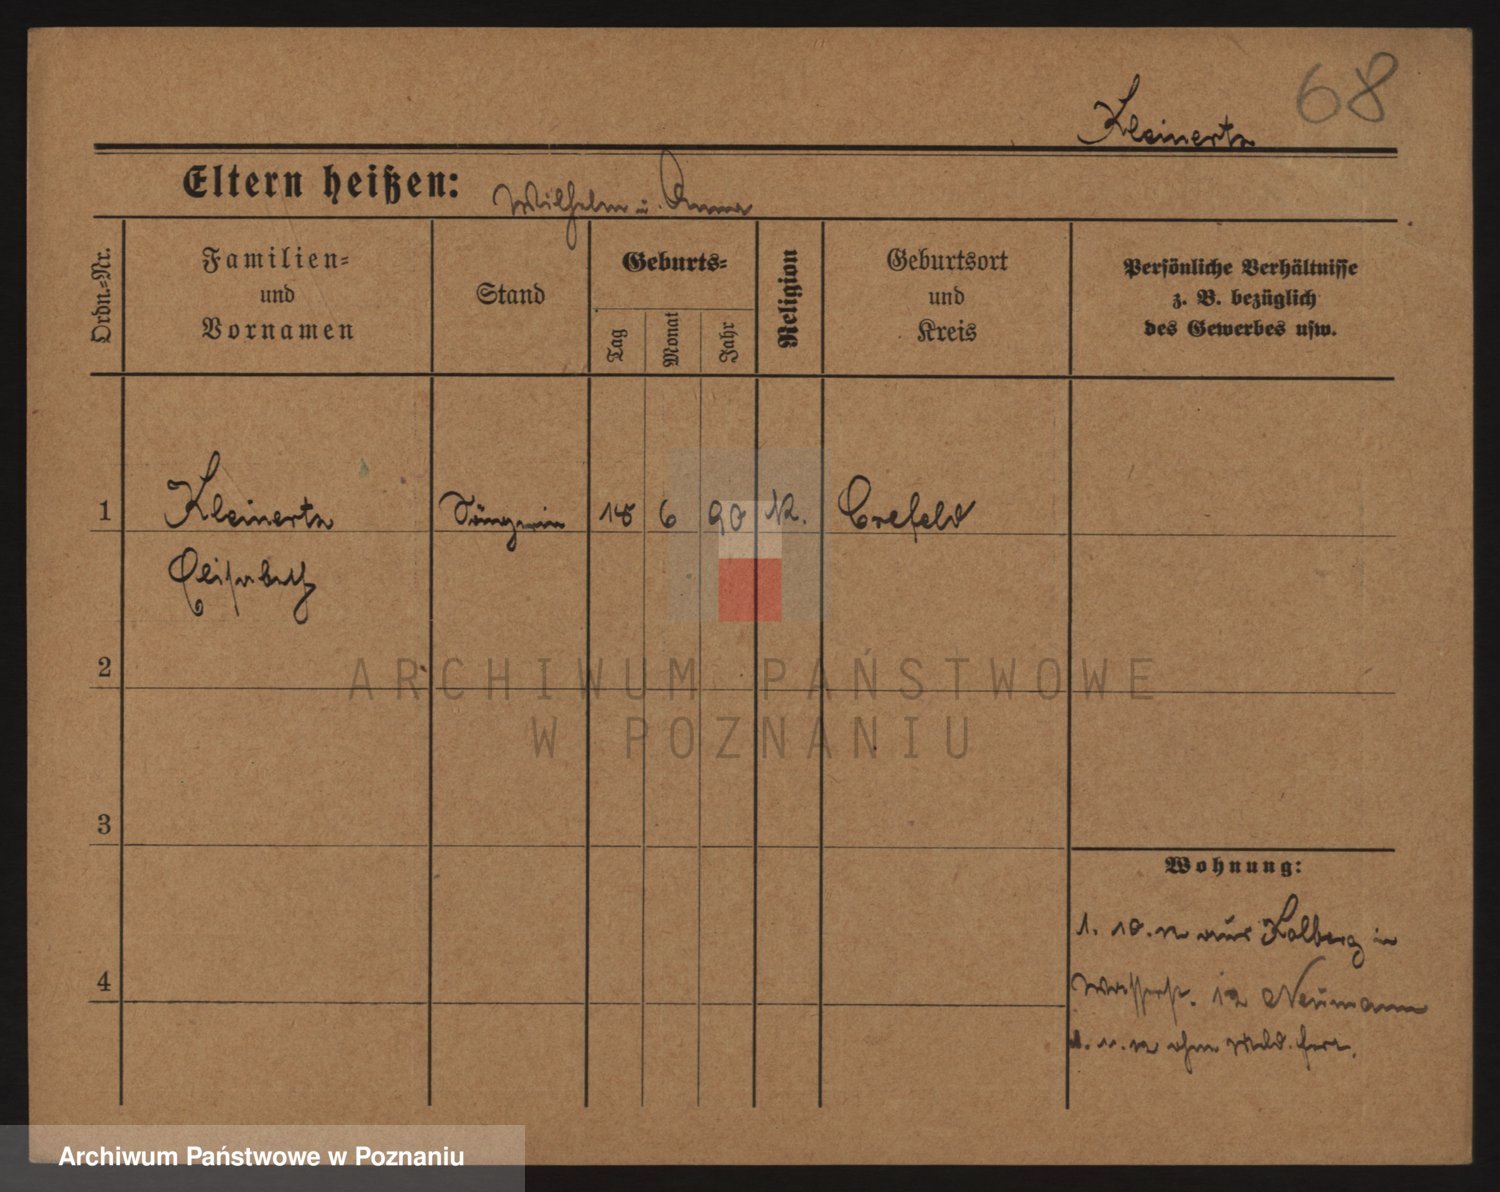 68
Kleinertz
Eltern heißen: Wilhelm u. Anna
Ordn.-Nr.
Familien-
und
Vornamen
Stand
Geburts-
Tag
Monat
Jahr
Religion
Geburtsort
und
Kreis
Persönliche Verhältnisse
z. B. bezüglich
des Gewerbes usw.
1 Kleinertz Sängerin 18 6 90 K. Crefeld
Elisabeth
2
3
4
Wohnung:
1. 10. 12 aus Kolberg in
Wasserstr. 12 Neumann
1. 11. 12 ohne Meld. fort.
ARCHIWUM PAŃSTWOWE
W POZNANIU
Archiwum Państwowe w Poznaniu